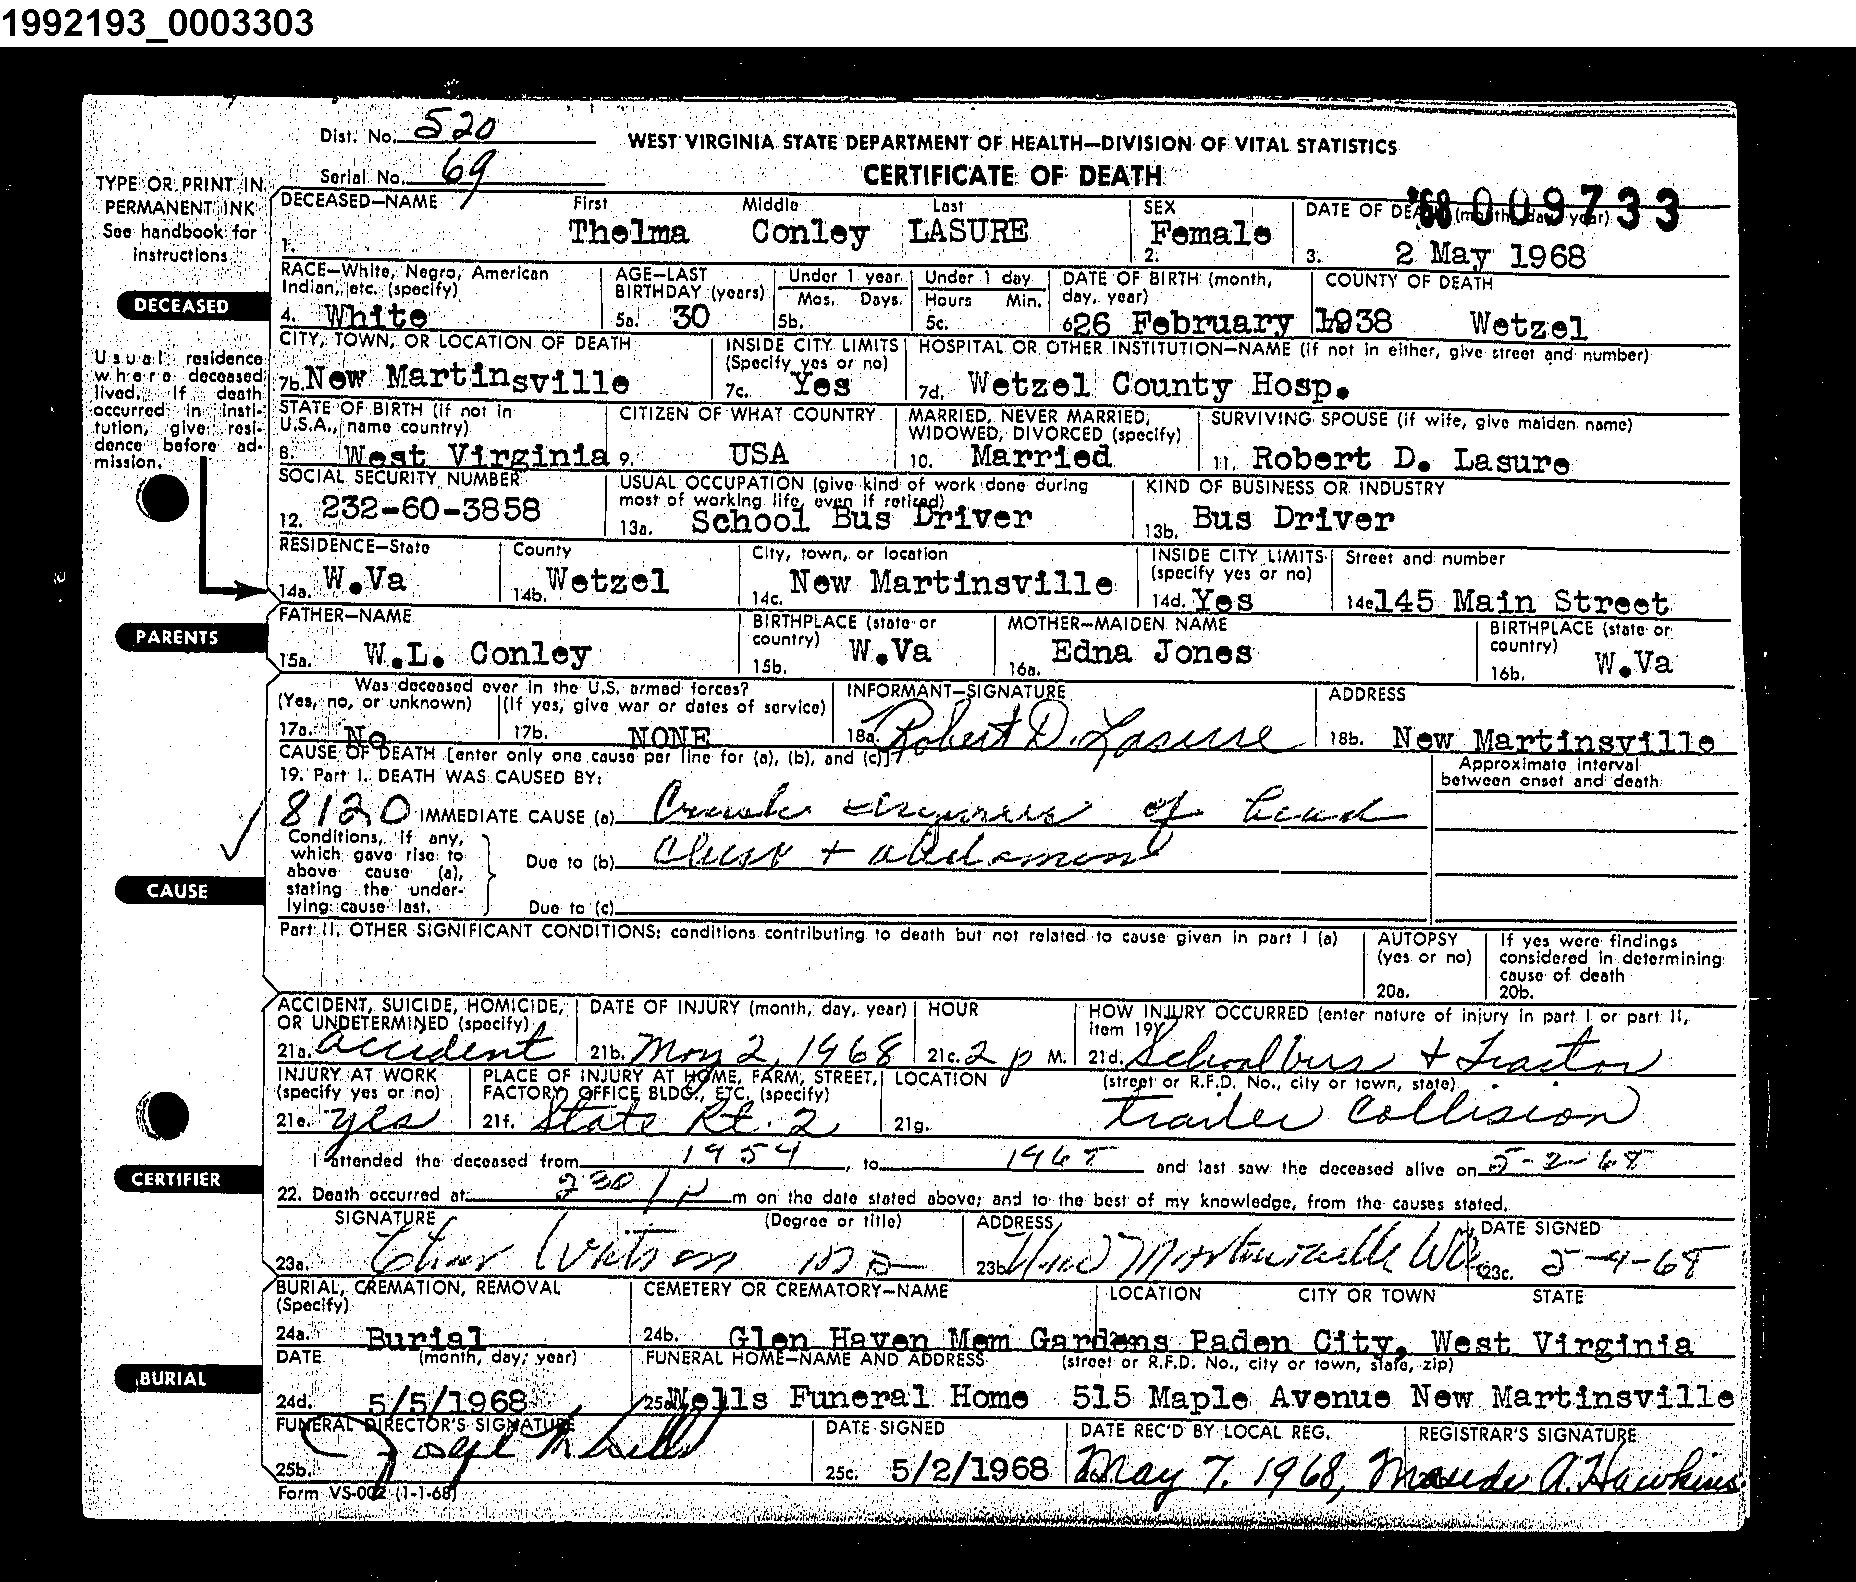 1992193_0003303
Dist. No. 520
WEST VIRGINIA STATE DEPARTMENT OF HEALTH—DIVISION OF VITAL STATISTICS
Serial No. 69
CERTIFICATE OF DEATH
'68 009733
TYPE OR PRINT IN
PERMANENT INK
See handbook for
instructions
DECEASED—NAME First Middle Last SEX DATE OF DEATH (month, day, year)
1. Thelma Conley LASURE 2. Female 3. 2 May 1968
DECEASED
RACE—White, Negro, American Indian, etc. (specify) AGE—LAST BIRTHDAY (years) Under 1 year Mos. Days Under 1 day Hours Min. DATE OF BIRTH (month, day, year) COUNTY OF DEATH
4. White 5a. 30 5b. 5c. 6. 26 February 1938 Wetzel
Usual residence
where deceased
lived. If death
occurred in insti-
tution, give resi-
dence before ad-
mission.
CITY, TOWN, OR LOCATION OF DEATH INSIDE CITY LIMITS (Specify yes or no) HOSPITAL OR OTHER INSTITUTION—NAME (if not in either, give street and number)
7b. New Martinsville 7c. Yes 7d. Wetzel County Hosp.
STATE OF BIRTH (if not in U.S.A., name country) CITIZEN OF WHAT COUNTRY MARRIED, NEVER MARRIED, WIDOWED, DIVORCED (specify) SURVIVING SPOUSE (if wife, give maiden name)
8. West Virginia 9. USA 10. Married 11. Robert D. Lasure
SOCIAL SECURITY NUMBER USUAL OCCUPATION (give kind of work done during most of working life, even if retired) KIND OF BUSINESS OR INDUSTRY
12. 232-60-3858 13a. School Bus Driver 13b. Bus Driver
RESIDENCE—State County City, town, or location INSIDE CITY LIMITS (specify yes or no) Street and number
14a. W.Va 14b. Wetzel 14c. New Martinsville 14d. Yes 14e. 145 Main Street
PARENTS
FATHER—NAME BIRTHPLACE (state or country) MOTHER—MAIDEN NAME BIRTHPLACE (state or country)
15a. W.L. Conley 15b. W.Va 16a. Edna Jones 16b. W.Va
Was deceased ever in the U.S. armed forces? INFORMANT—SIGNATURE ADDRESS
(Yes, no, or unknown) (If yes, give war or dates of service)
17a. No 17b. NONE 18a. Robert D. Lasure 18b. New Martinsville
CAUSE OF DEATH [enter only one cause per line for (a), (b), and (c)] Approximate interval between onset and death
19. Part I. DEATH WAS CAUSED BY:
8120 IMMEDIATE CAUSE (a) Crush injuries of head
CAUSE
Conditions, if any,
which gave rise to
above cause (a),
stating the under-
lying cause last.
Due to (b) chest + abdomen
Due to (c)
Part II. OTHER SIGNIFICANT CONDITIONS: conditions contributing to death but not related to cause given in part I (a) AUTOPSY (yes or no) 20a. If yes were findings considered in determining cause of death 20b.
ACCIDENT, SUICIDE, HOMICIDE, OR UNDETERMINED (specify) DATE OF INJURY (month, day, year) HOUR HOW INJURY OCCURRED (enter nature of injury in part I or part II, item 19)
21a. accident 21b. May 2, 1968 21c. 2 p M. 21d. School bus + Tractor
INJURY AT WORK (specify yes or no) PLACE OF INJURY AT HOME, FARM, STREET, FACTORY, OFFICE BLDG., ETC. (specify) LOCATION (street or R.F.D. No., city or town, state)
21e. yes 21f. State Rt. 2 21g. trailer collision
CERTIFIER
I attended the deceased from 1954, to 1968 and last saw the deceased alive on 5-2-68
22. Death occurred at 230 p m on the date stated above; and to the best of my knowledge, from the causes stated.
SIGNATURE (Degree or title) ADDRESS DATE SIGNED
23a. Watson MD 23b. New Martinsville WVa 23c. 5-4-68
BURIAL, CREMATION, REMOVAL (Specify) CEMETERY OR CREMATORY—NAME LOCATION CITY OR TOWN STATE
24a. Burial 24b. Glen Haven Mem Gardens Paden City, West Virginia
BURIAL
DATE (month, day, year) FUNERAL HOME—NAME AND ADDRESS (street or R.F.D. No., city or town, state, zip)
24d. 5/5/1968 25a. Wells Funeral Home 515 Maple Avenue New Martinsville
FUNERAL DIRECTOR'S SIGNATURE DATE SIGNED DATE REC'D BY LOCAL REG. REGISTRAR'S SIGNATURE
25b. 25c. 5/2/1968 May 7, 1968, Maude A. Hawkins
Form VS-002 (1-1-68)